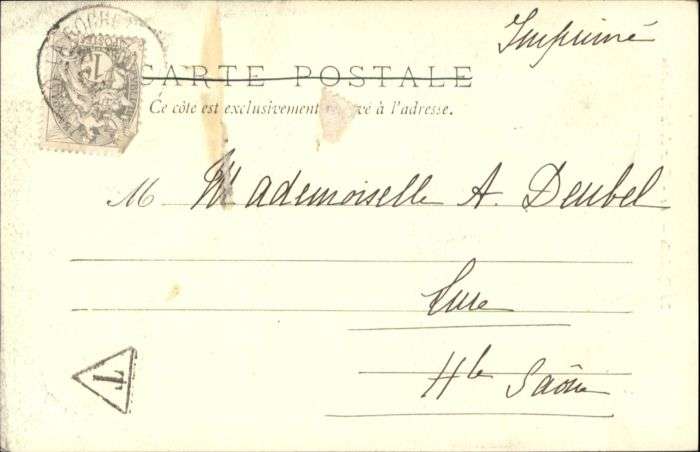 Imprimé
CARTE POSTALE
Ce côte est exclusivement à l'adresse.
M Mademoiselle A. Deubel
Lure
Hte Saône
T